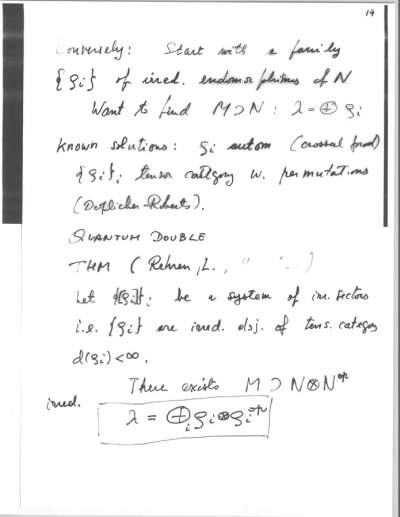 14
Conversely: Start with a family
{ρi} of irred. endomorphisms of N
Want to find M⊃N : λ = ⊕ ρi
Known solutions: ρi autom (crossed prod)
{ρi}i tensor category w. permutations
(Doplicher-Roberts).
QUANTUM DOUBLE
THM ( Rehren, L. , " - )
Let {[ρi]}i be a system of irr. sectors
i.e. {ρi} are irred. obj. of tens. category
d(ρi)<∞.
There exists M ⊃ N⊗N^op
irred.
λ = ⊕i ρi⊗ρi^op